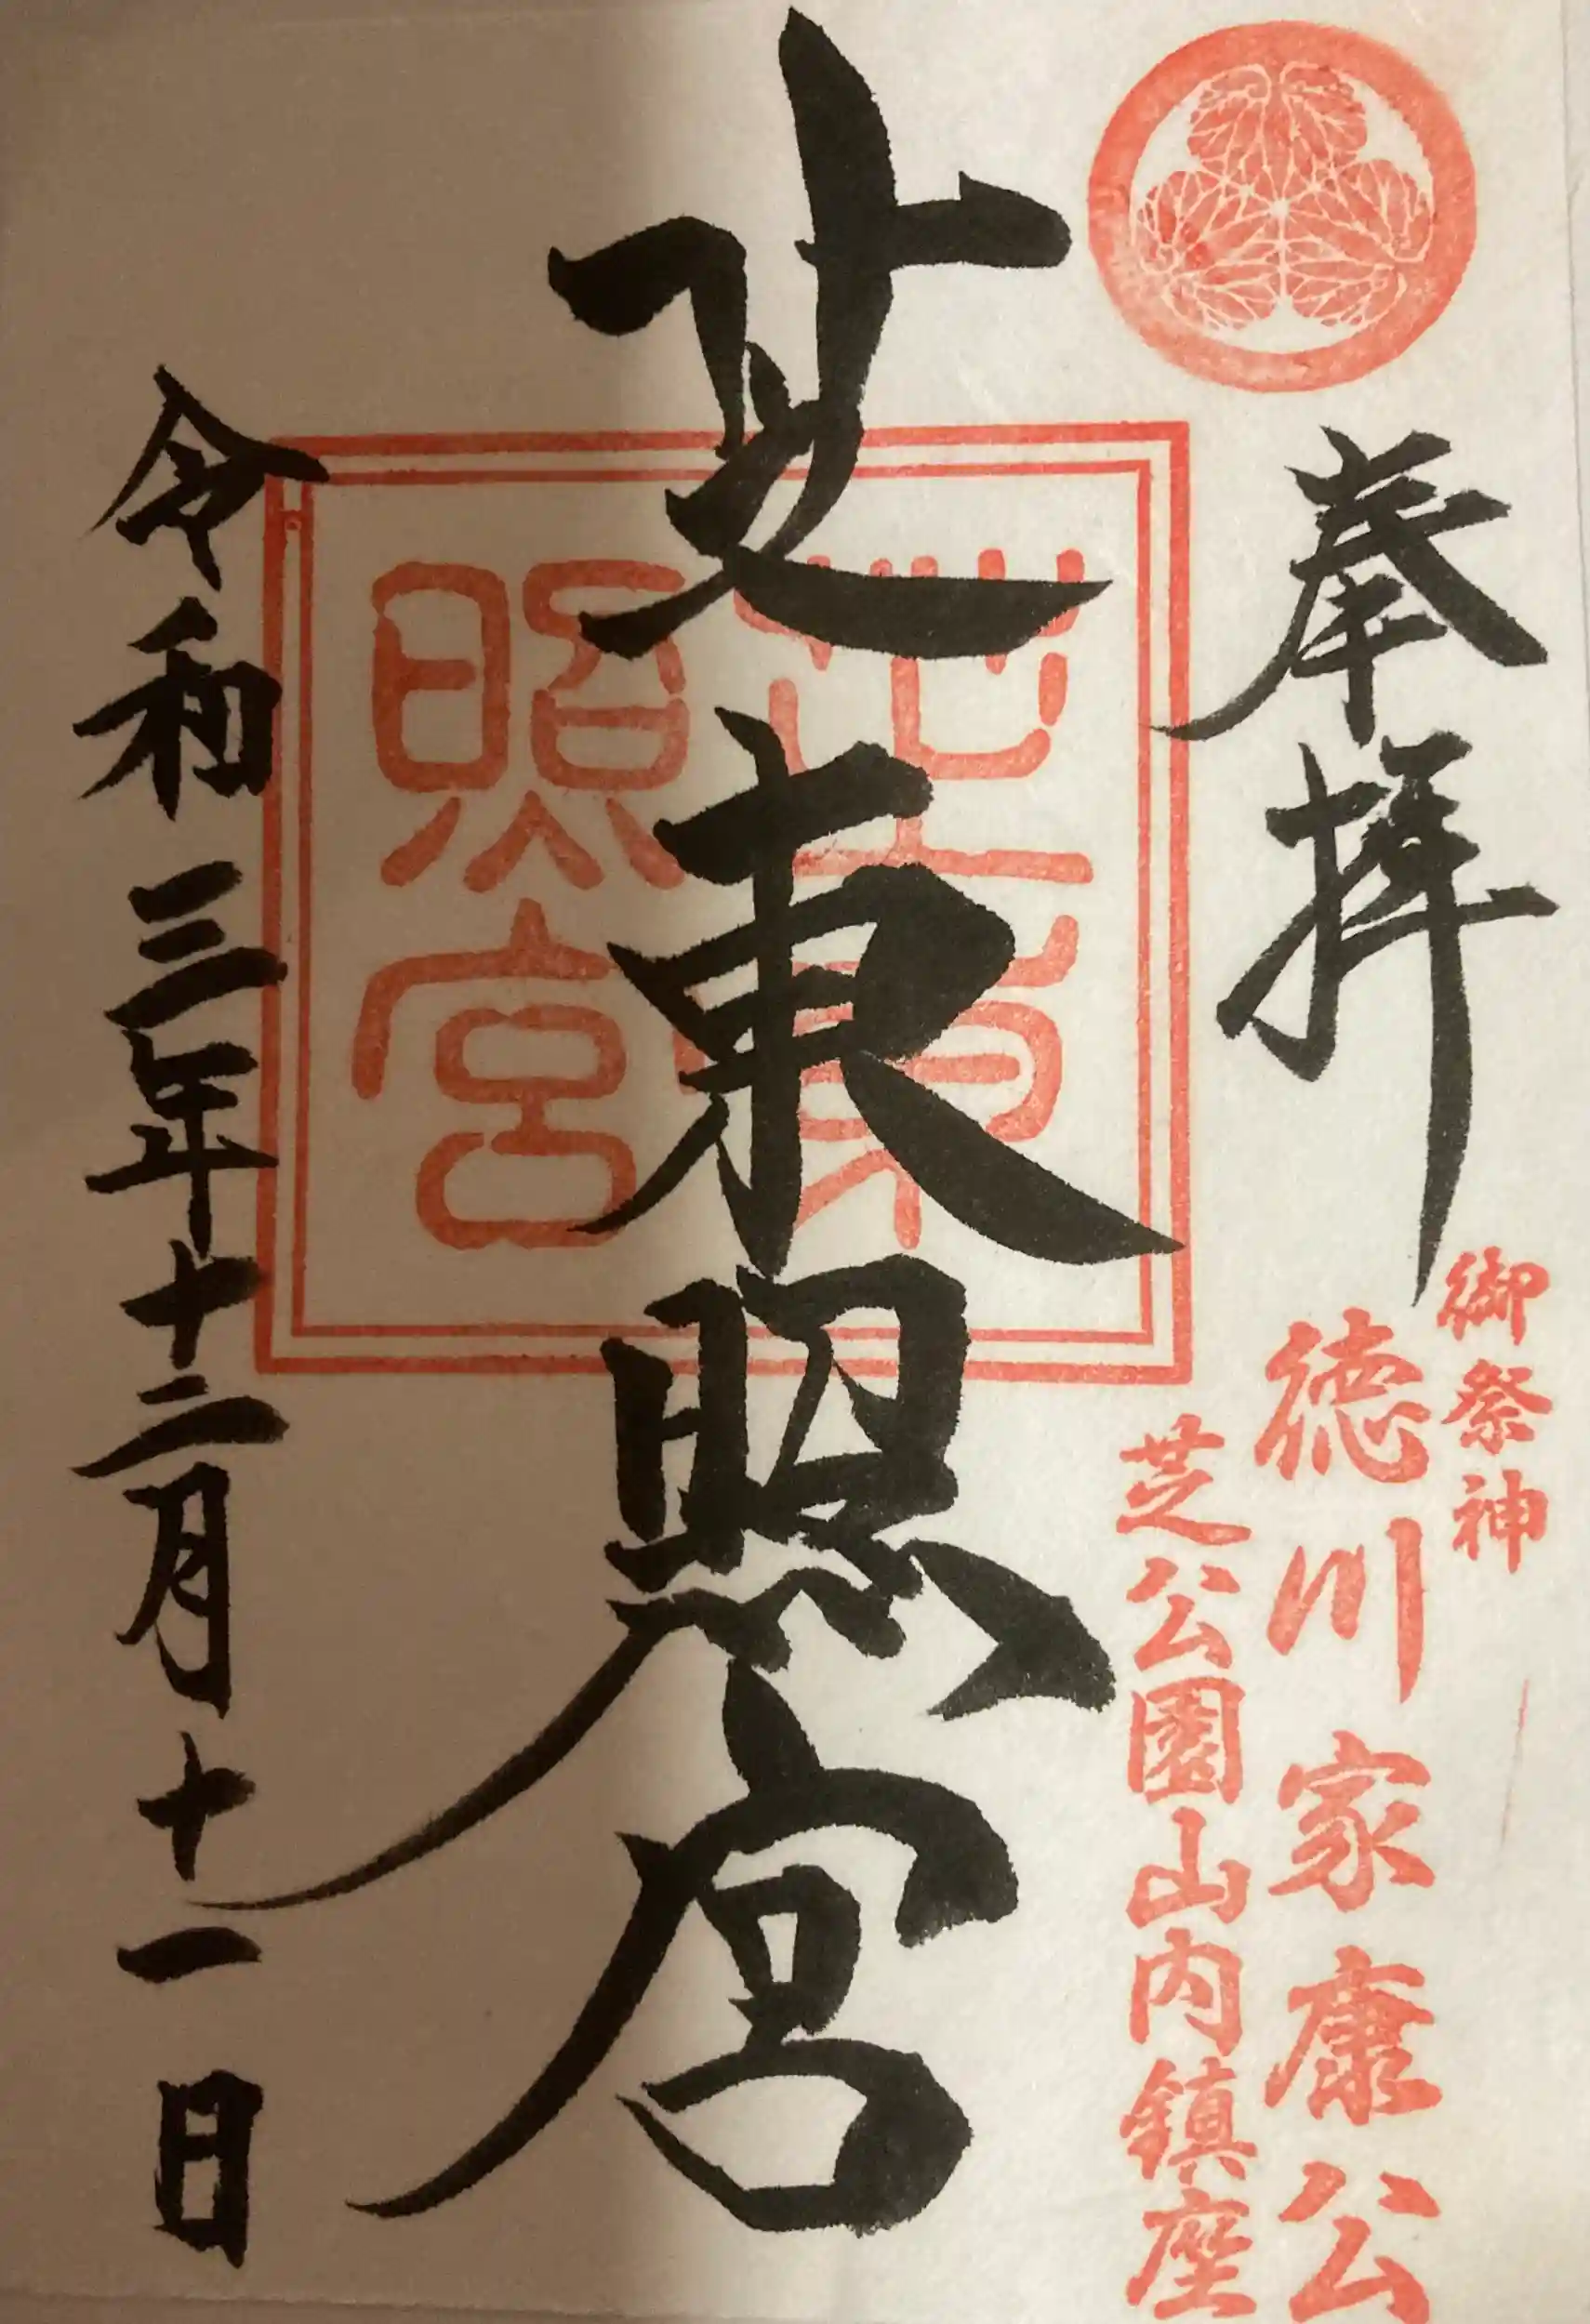 奉拝
御祭神
徳川家康公
芝公園山内鎮座
芝東照宮
芝東
照宮
令和三年十二月十一日